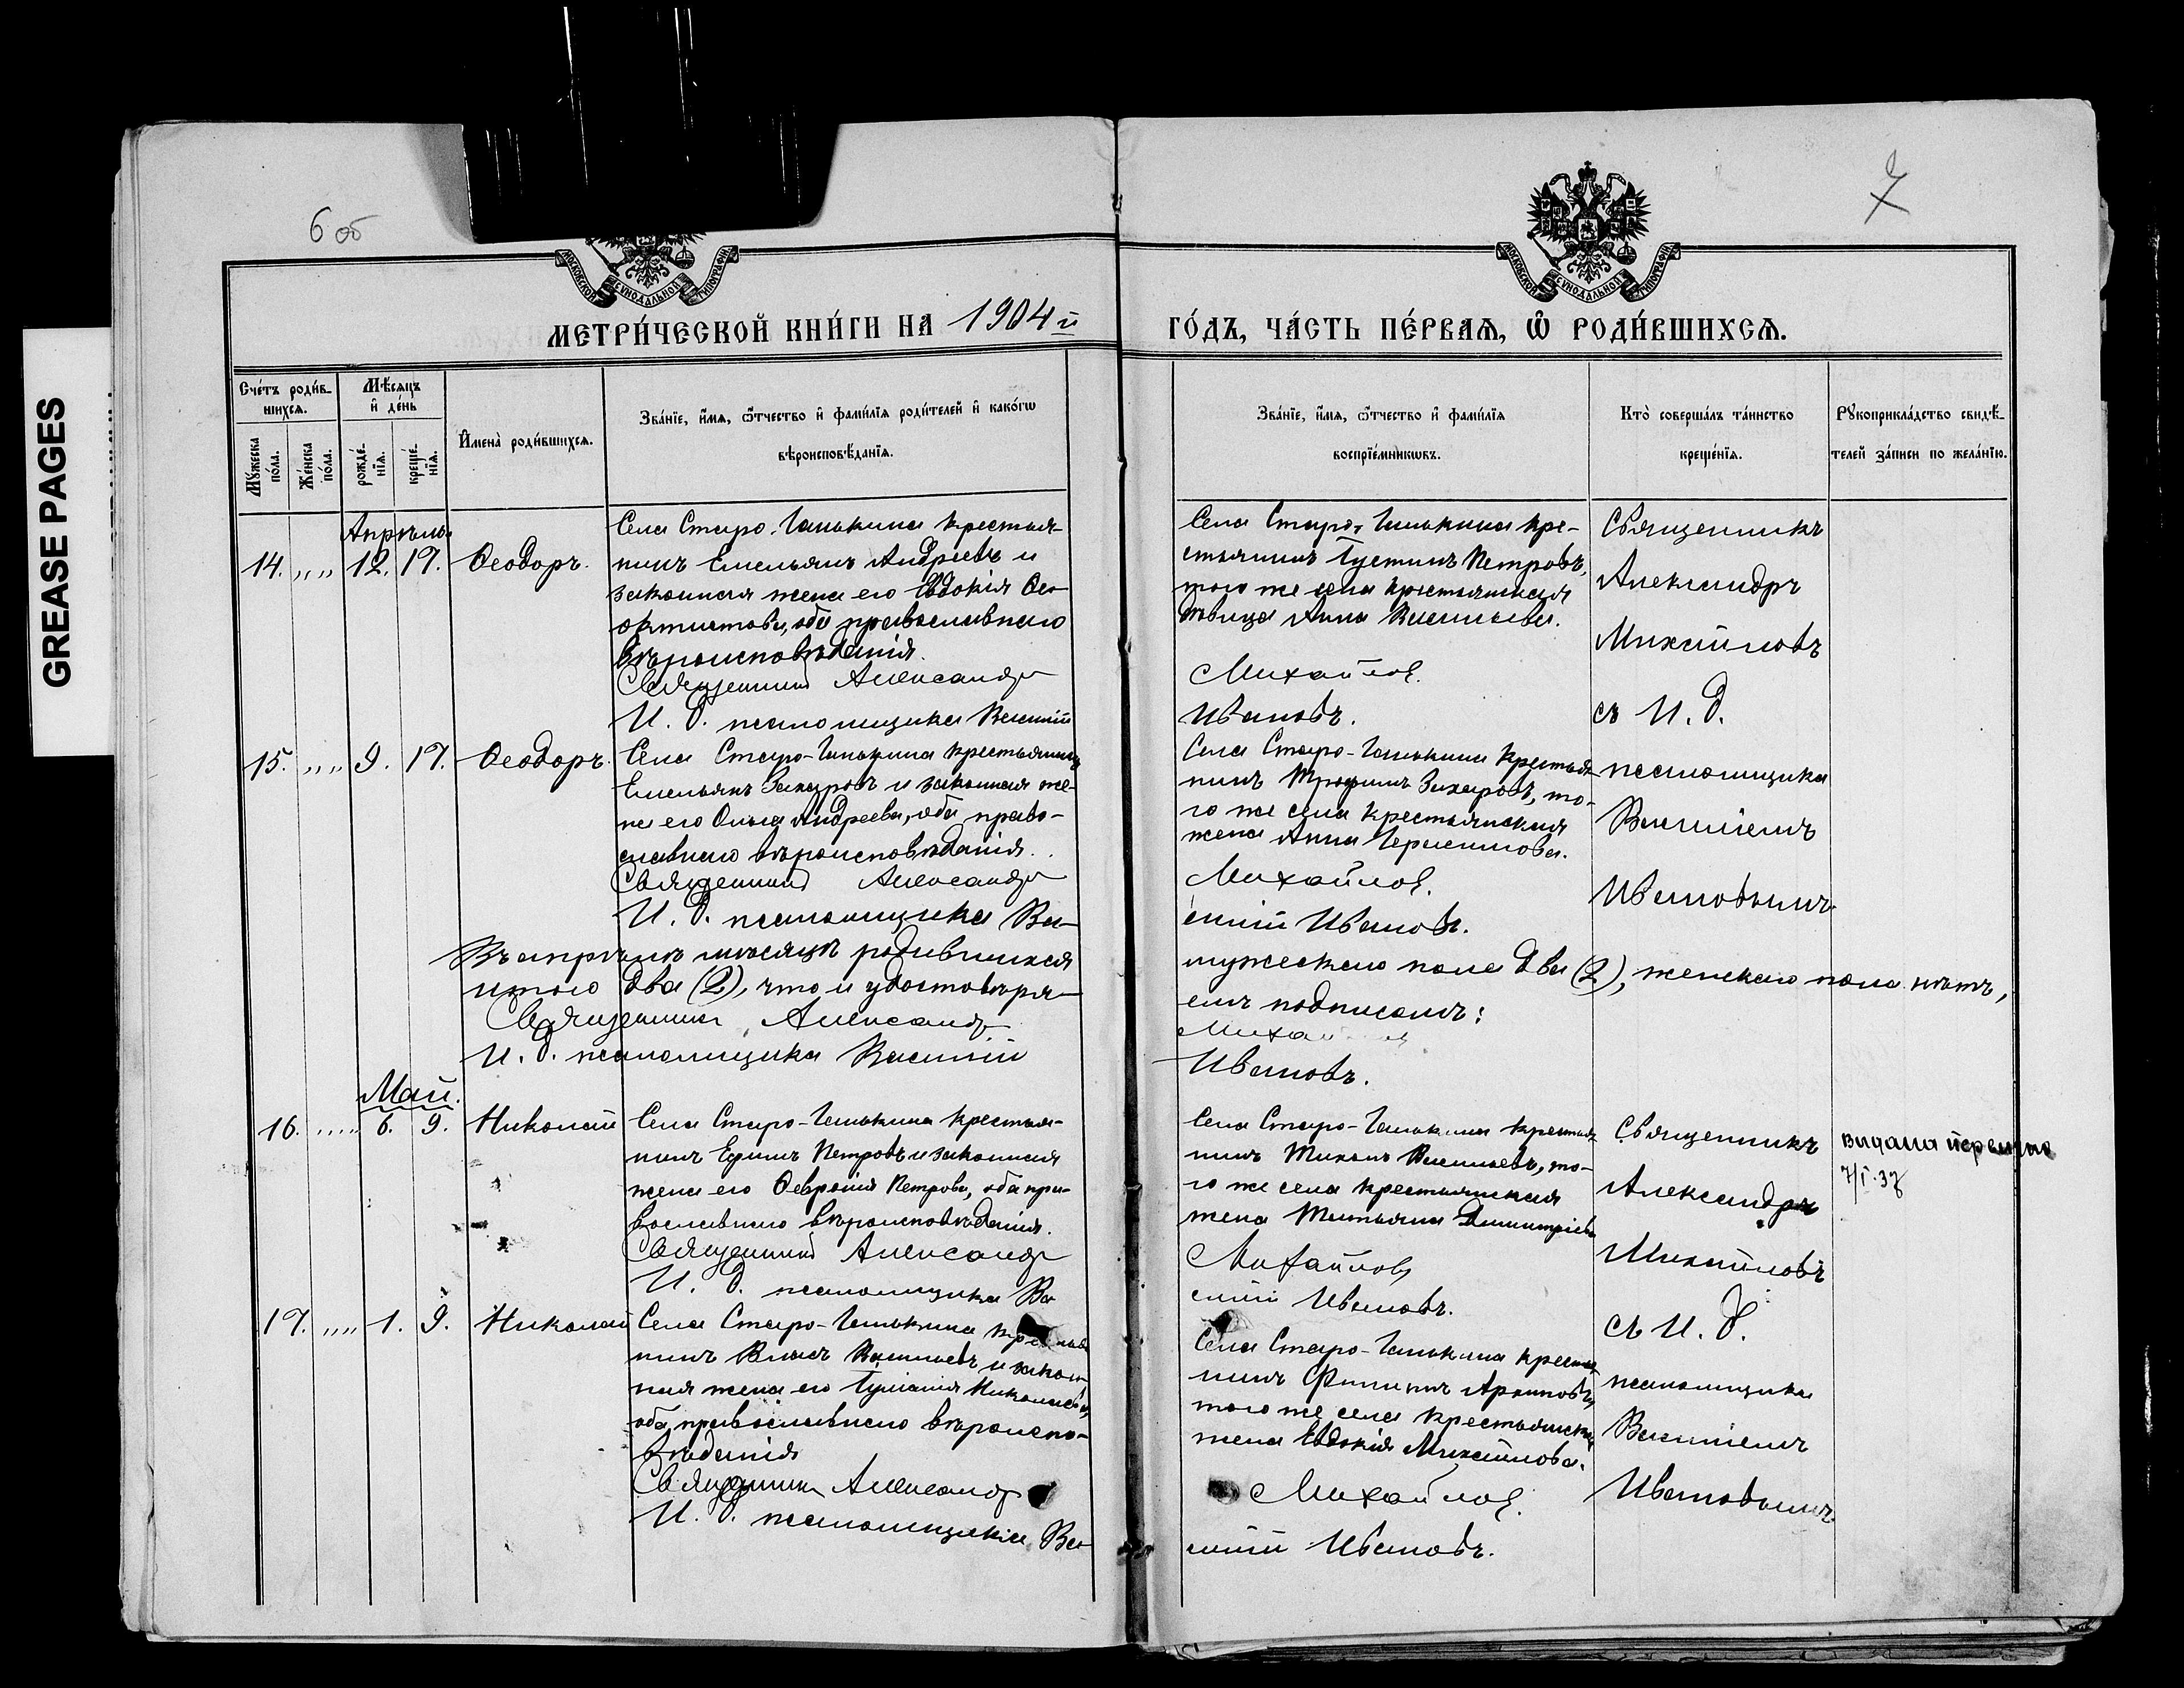 GREASE PAGES
6 об
7
МОСКОВСКОЙ СѴНОДАЛЬНОЙ ТИПОГРАФІИ
МОСКОВСКОЙ СѴНОДАЛЬНОЙ ТИПОГРАФІИ
МЕТРИ́ЧЕСКОЙ КНИ́ГИ НА 1904 й
ГО́ДЪ, ЧА́СТЬ ПЕ́РВАѦ, Ѽ РОДИ́ВШИХСѦ.
Сче́тъ роди́в-
шихсѧ.
Мꙋ́жеска по́ла.
Же́нска по́ла.
Мѣ́сѧцъ
и҆ де́нь
рожде́-
нїѧ.
креще́-
нїѧ.
И҆мена̀ роди́вшихсѧ.
Зва́нїе, и҆́мѧ, ѻ҆́тчество и҆ фами́лїѧ роди́телей и҆ како́гѡ
вѣроисповѣ́данїѧ.
Зва́нїе, и҆́мѧ, ѻ҆́тчество и҆ фами́лїѧ
воспрїе́мникѡвъ.
Кто̀ соверша́лъ та́инство
креще́нїѧ.
Рꙋкоприкла́дство свидѣ́-
телей за́писи по жела́нїю.
Апрѣль
14. „ „ 12. 17. Ѳеодоръ.
Села Старо-Ганькина крестья-
нинъ Емельянъ Андреевъ и
законная жена его Евдокія Ѳео-
октистова, оба православнаго
вѣроисповѣданія.
Священникъ Александръ
И. д. псаломщика Василій
Села Старо-Ганькина кре-
стьянинъ Іустинъ Петровъ,
того же села крестьянская
дѣвица Анна Васильева.
Михайловъ.
Ивановъ.
Священникъ
Александръ
Михайловъ
съ И. д.
псаломщика
Василіемъ
Ивановымъ
15. „ „ 9. 17. Ѳеодоръ.
Села Старо-Ганькина крестьянинъ
Емельянъ Захаровъ и законная же-
на его Ольга Андреева, оба право-
славнаго вѣроисповѣданія.
Священникъ Александръ
И. д. псаломщика Ва-
Села Старо-Ганькина крестья
нинъ Трофимъ Захаровъ, то-
го же села крестьянская
жена Анна Герасимова.
Михайловъ.
силій Ивановъ.
Въ апрѣлѣ мѣсяцѣ родившихся
мужескаго пола два (2), женскаго пола нѣтъ,
итого два (2), что и удостовѣря-
емъ подписомъ:
Священникъ Александръ
И. д. псаломщика Василій
Ивановъ.
Май.
16. „ „ 6. 9. Николай
Села Старо-Ганькина крестья-
нинъ Ефимъ Петровъ и законная
жена его Ѳевронія Петрова, оба пра-
вославнаго вѣроисповѣданія.
Священникъ Александръ
И. д. псаломщика Ва
Села Старо-Ганькина крестья
нинъ Тихонъ Васильевъ, то-
го же села крестьянская
жена Татьяна Димитріева
Михайловъ
силій Ивановъ.
Священникъ
Александръ
Михайловъ
съ И. д.
псаломщика
Василіемъ
Ивановымъ
7/I-37
17. „ „ 1. 9. Николай
Села Старо-Ганькина крестья
нинъ Власъ Васильевъ и закон-
ная жена его Іуліанія Николаева,
оба православнаго вѣроиспо-
вѣданія
Священникъ Александръ
И. д. псаломщика Ва-
Села Старо-Ганькина крестья
нинъ Филиппъ Архиповъ,
того же села крестьянская
жена Евдокія Михайлова.
Михайловъ.
силій Ивановъ.